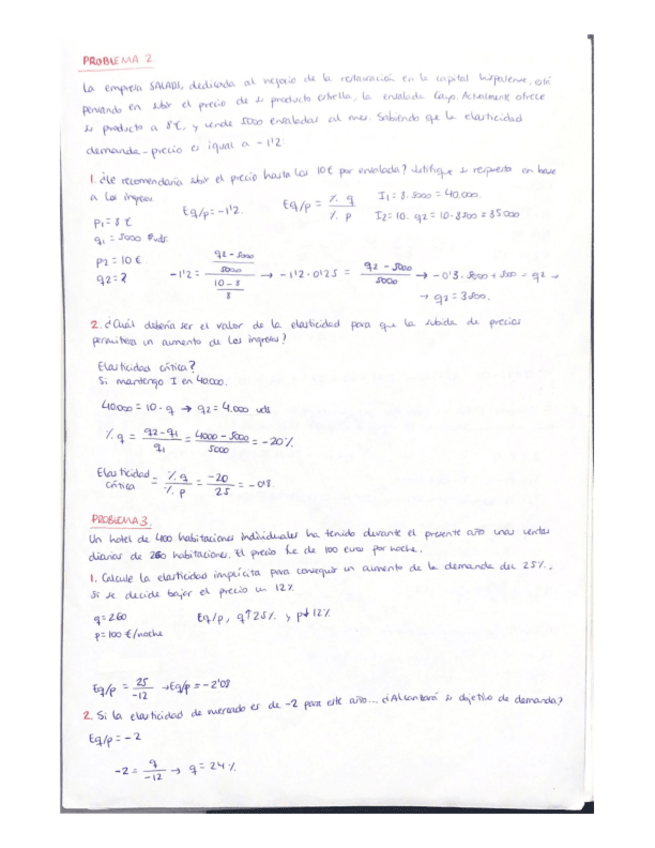 PROBLEMA 2
La empresa SALADS, dedicada al negocio de la restauración en la capital hispalense, está
pensando en subir el precio de su producto estrella, la ensalada Cayo. Actualmente ofrece
su producto a 8€, y vende 5000 ensaladas al mes. Sabiendo que la elasticidad
demanda-precio es igual a -1'2:
1. ¿Le recomendaría subir el precio hasta los 10€ por ensalada? Justifique su respuesta en base
a los ingresos.
Eq/p = -1'2. Eq/p = % q / % p I1 = 8 · 5000 = 40.000.
I2 = 10 · q2 = 10 · 3500 = 35000
P1 = 8 €
q1 = 5000 uds
P2 = 10 €
q2 = ?
-1'2 = ((q2 - 5000) / 5000) / ((10 - 8) / 8) → -1'2 · 0'25 = (q2 - 5000) / 5000 → -0'3 · 5000 + 5000 = q2 →
→ q2 = 3500.
2. ¿Cuál debería ser el valor de la elasticidad para que la subida de precios
permitiera un aumento de los ingresos?
Elasticidad crítica?
Si mantengo I en 40.000.
40.000 = 10 · q → q2 = 4.000 uds
% q = (q2 - q1) / q1 = (4000 - 5000) / 5000 = -20 %
Elasticidad crítica = % q / % p = -20 / 25 = -0'8.
PROBLEMA 3.
Un hotel de 400 habitaciones individuales ha tenido durante el presente año unas ventas
diarias de 260 habitaciones. El precio fue de 100 euros por noche.
1. Calcule la elasticidad implícita para conseguir un aumento de la demanda del 25%,
si se decide bajar el precio un 12%
q = 260 Eq/p, q↑25% y p↓12%
p = 100 €/noche
Eq/p = 25 / -12 → Eq/p = -2'08
2. Si la elasticidad de mercado es de -2 para este año... ¿Alcanzará su objetivo de demanda?
Eq/p = -2
-2 = q / -12 → q = 24 %